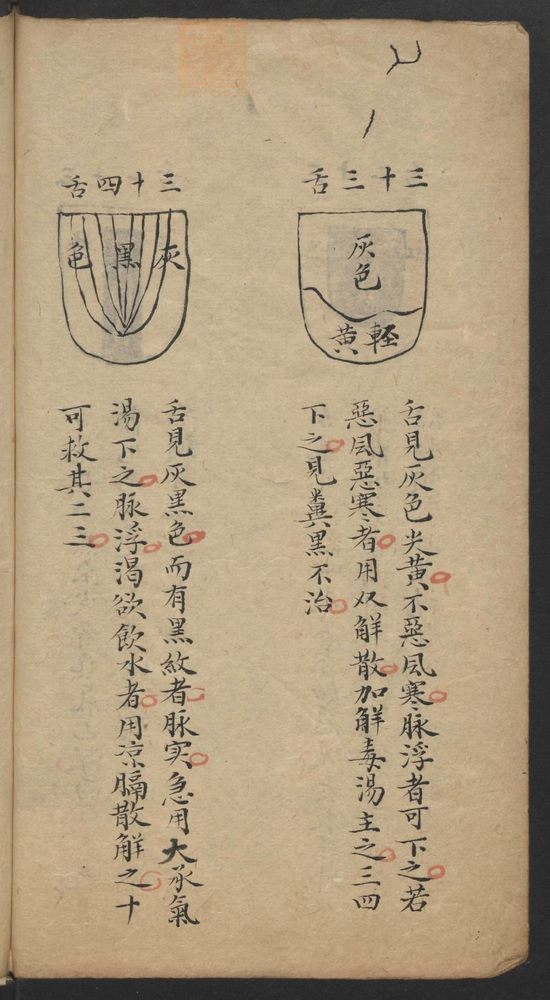 三十三舌
灰色
軽黄
舌見灰色尖黄不惡风寒脉浮者可下之若
惡风惡寒者用双解散加解毒湯主之三四
下之見糞黒不治
三十四舌
灰黒色
舌見灰黒色而有黒紋者脉实急用大承氣
湯下之脉浮渴欲飲水者用凉膈散解之十
可救其二三